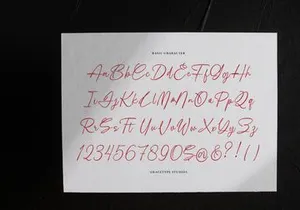 BASIC CHARACTER
AaBbCcDdEeFfGgHh
IiJjKkLlMmNnOoPpQq
RrSsTtUuVvWwXxYyZz
1234567890$@&?!()